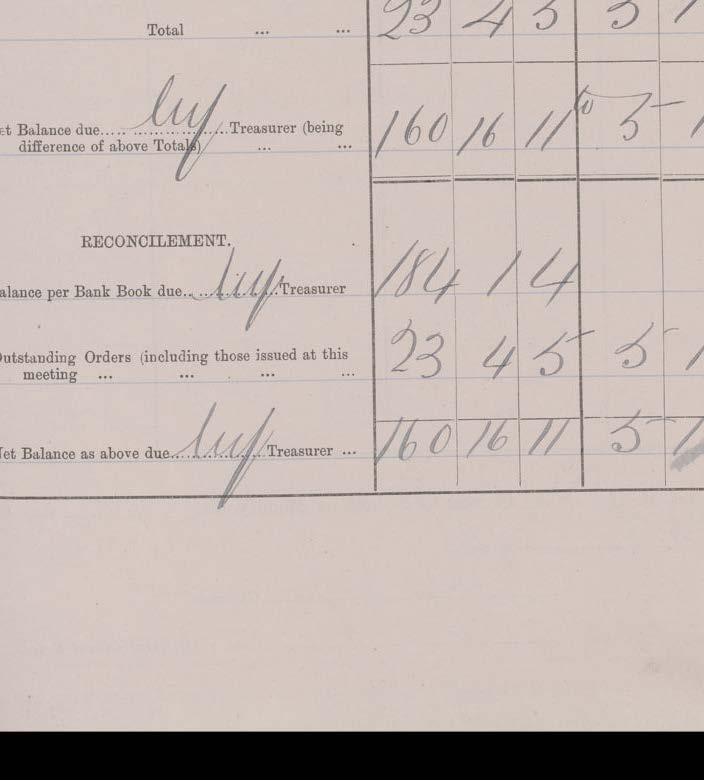 Total ... ... 23 4 5 5
et Balance due..... by Treasurer (being
difference of above Totals) ... ... 160 16 11 5
RECONCILEMENT.
alance per Bank Book due.. by Treasurer 184 1 4
Outstanding Orders (including those issued at this
meeting ... ... ... ... 23 4 5 5
Net Balance as above due by Treasurer ... 160 16 11 5